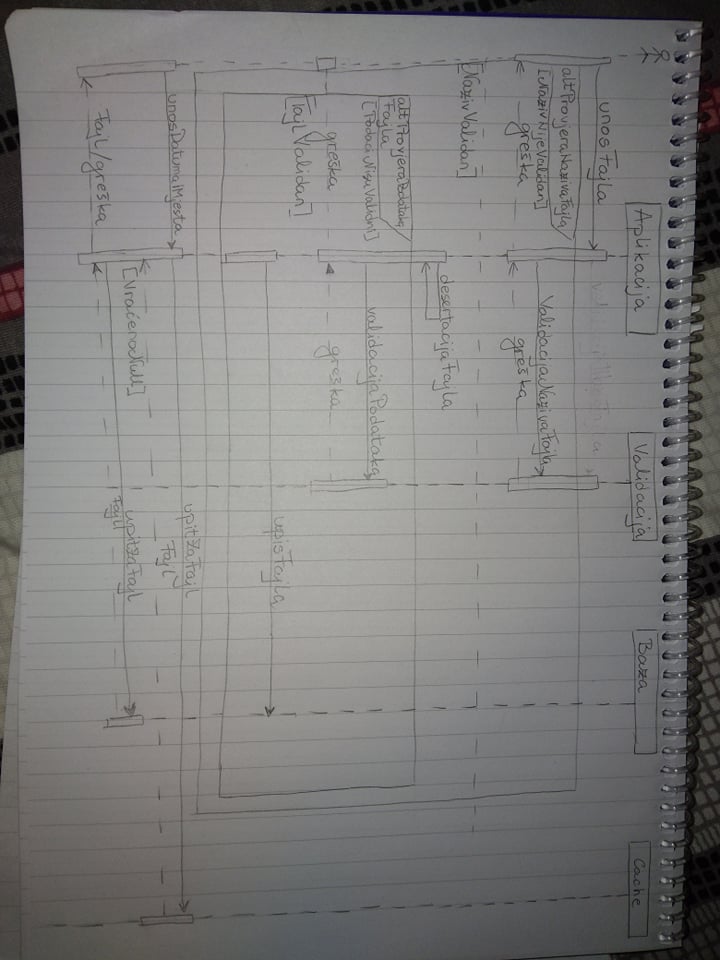 Aplikacija
Validacija
Baza
Cache
unosFajla
altProvjeraNazivaFajla
[NazivNijeValidan]
ValidacijaNazivaFajla
greška
greška
[NazivValidan]
desertacijaFajla
altProvjeraPodataka
Fajla
[PodaciNisuValidni]
validacijaPodataka
greška
greška
[FajlValidan]
upisFajla
unosDatumaIMjesta
upitZaFajl
Fajl
[VraćenoNull]
upitZaFajl
Fajl
Fajl/greška